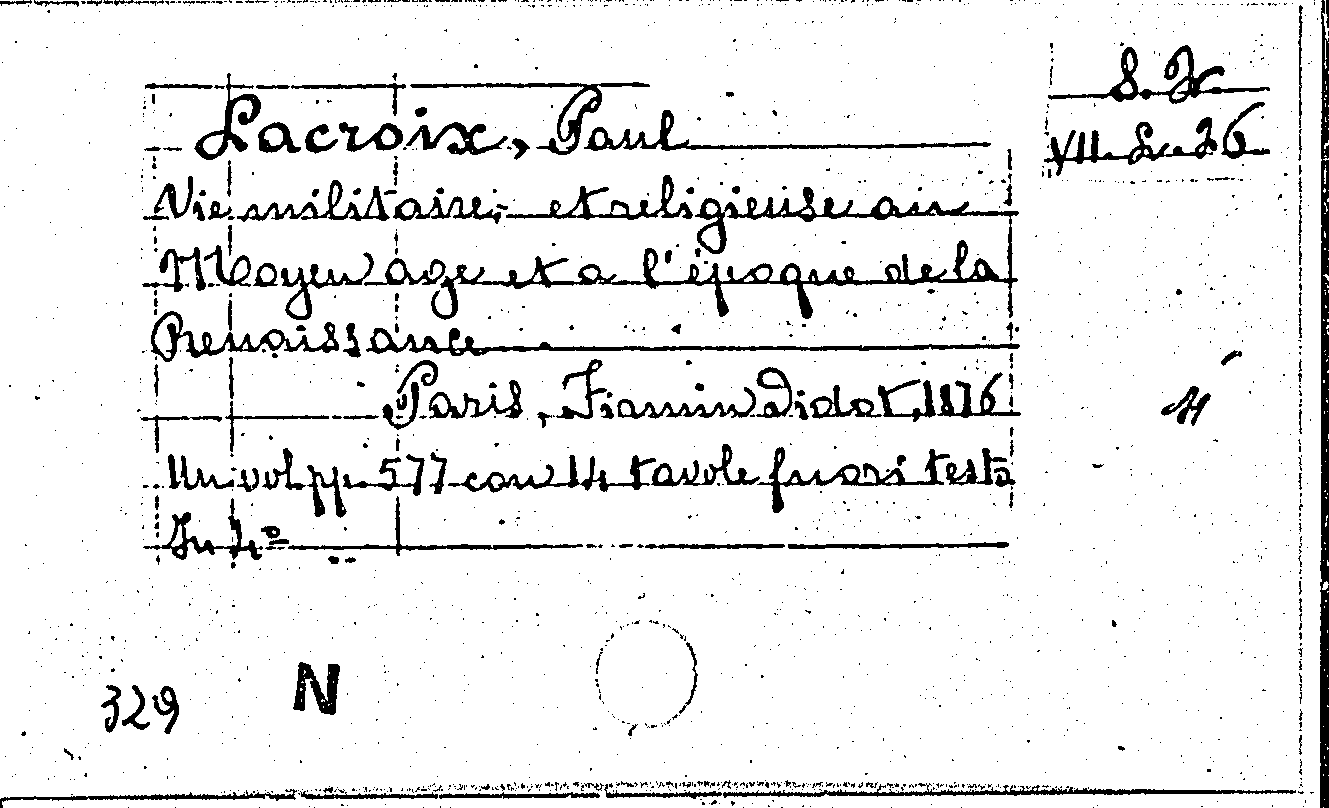 Lacroix, Paul
VII. 2. 26
Vie militaire, et religieuse au
Moyen age et a l'époque de la
Renaissance
Paris, Firmin Didot, 1876
Un vol. pp. 577 con 14 tavole fuori testo
In 4º
329
N